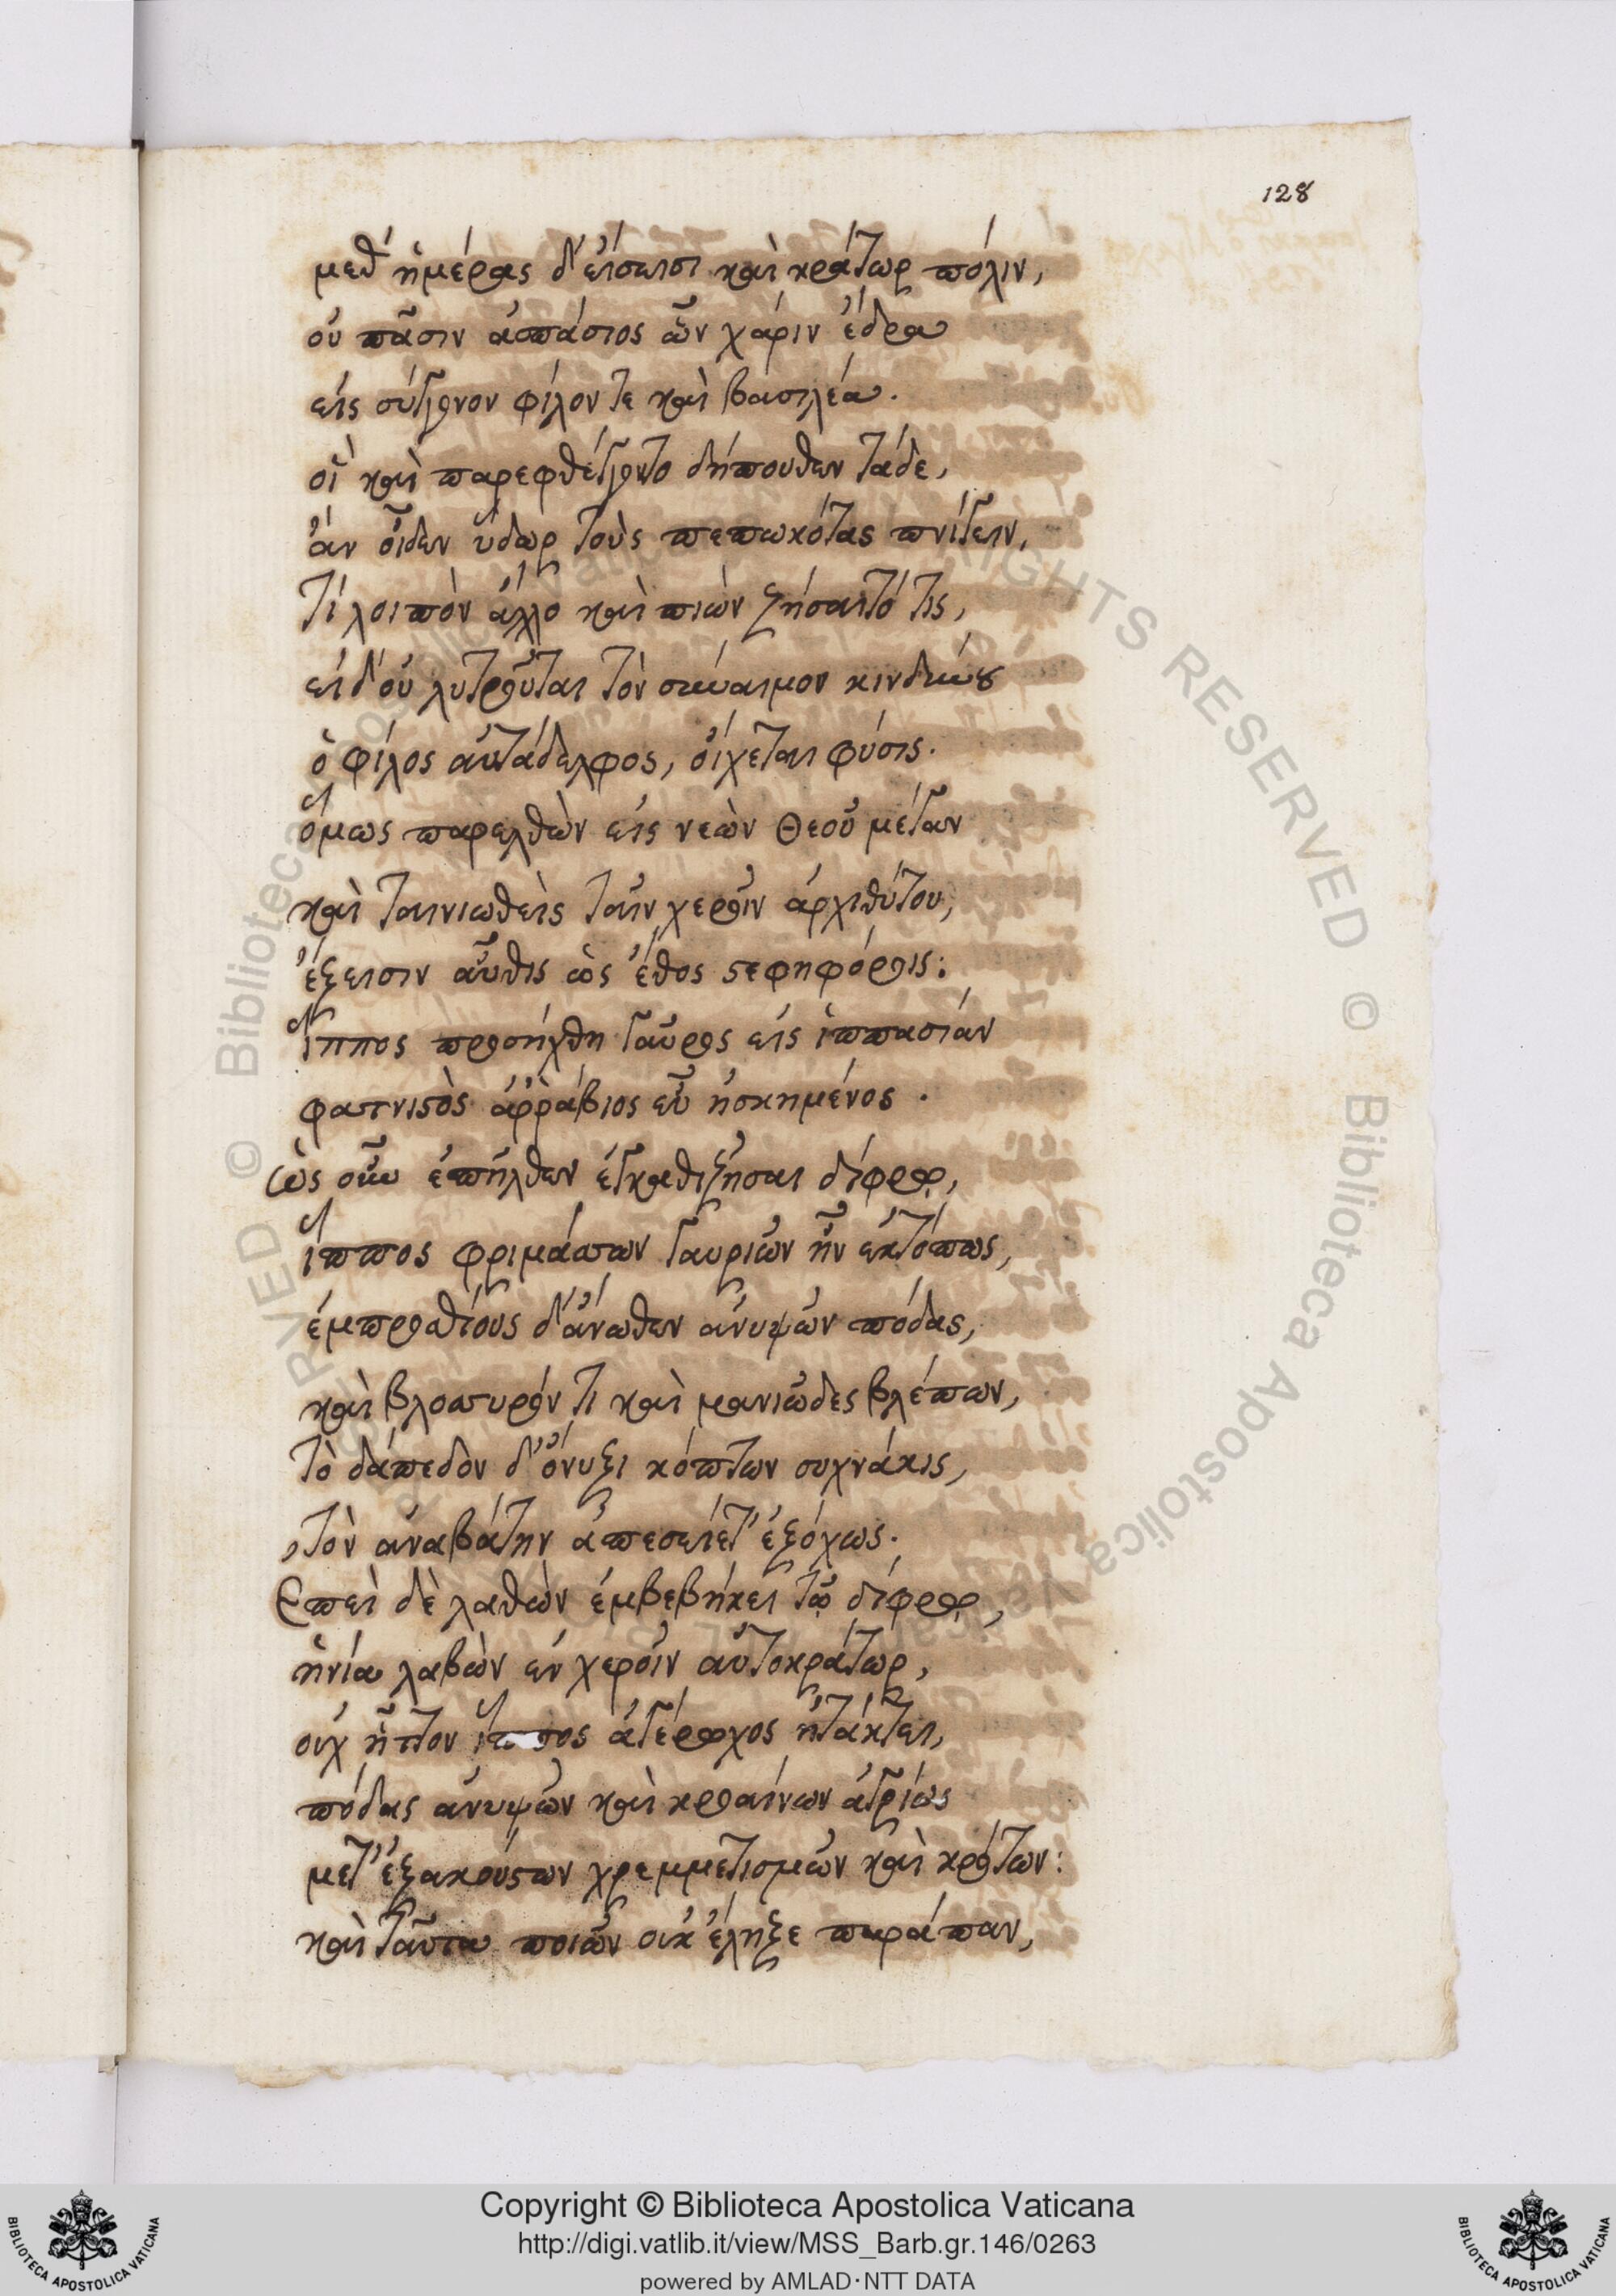 128
μεθ' ἡμέρας δ' εἴσεισι καὶ κράτωρ πόλιν,
οὐ πᾶσιν ἀσπάσιος ὧν χάριν ἔδρα
εἰς σύγγονον φίλον τε καὶ βασιλέα.
οἳ καὶ παρεφθέγγοντο δήπουθεν τάδε,
ἂν οἶδεν ὕδωρ τοὺς πεπωκότας πνίγειν,
τί λοιπὸν ἄλλο καὶ πιὼν ζήσαιτό τις,
εἰ δ' οὐ λυτροῦται τὸν σύναιμον κινδύνου
ὁ φίλος αὐτάδελφος, οἴχεται φύσις.
ὅμως παρελθὼν εἰς νεὼν Θεοῦ μέγαν
καὶ ταινιωθεὶς ταῖν χεροῖν ἀρχιθύτου,
ἔξεισιν αὖθις ὡς ἔθος στεφηφόροις:
ἵππος προσήχθη γαῦρος εἰς ἱππασίαν
φατνιστὸς ἀῤῥάβιος εὖ ἠσκημένος.
ὡς οὖν ἐπῆλθεν ἐγκαθιζῆσαι δίφρῳ,
ἵππος φριμάττων γαυριῶν ἦν ἐκτόπως,
ἐμπροσθίους δ' ἄνωθεν ἀνυψῶν πόδας,
καὶ βλοσυρόν τι καὶ μανιῶδες βλέπων,
τὸ δάπεδον δ' ὄνυξι κόπτων συχνάκις,
τὸν ἀναβάτην ἀπεσείετ' ἐξόχως.
Ἐπεὶ δὲ λαθὼν ἐμβεβήκει τῷ δίφρῳ,
ἡνία λαβὼν ἐν χεροῖν αὐτοκράτωρ,
οὐχ ἧττον ἵππος ἀγέρωχος ἠτάκτει,
πόδας ἀνυψῶν καὶ κροαίνων ἀγρίως
μετ' ἐξακούστων χρεμμετισμῶν καὶ κρότων:
καὶ ταῦτα ποιῶν οὐκ ἔληξε παράπαν,
Copyright © Biblioteca Apostolica Vaticana
http://digi.vatlib.it/view/MSS_Barb.gr.146/0263
powered by AMLAD·NTT DATA